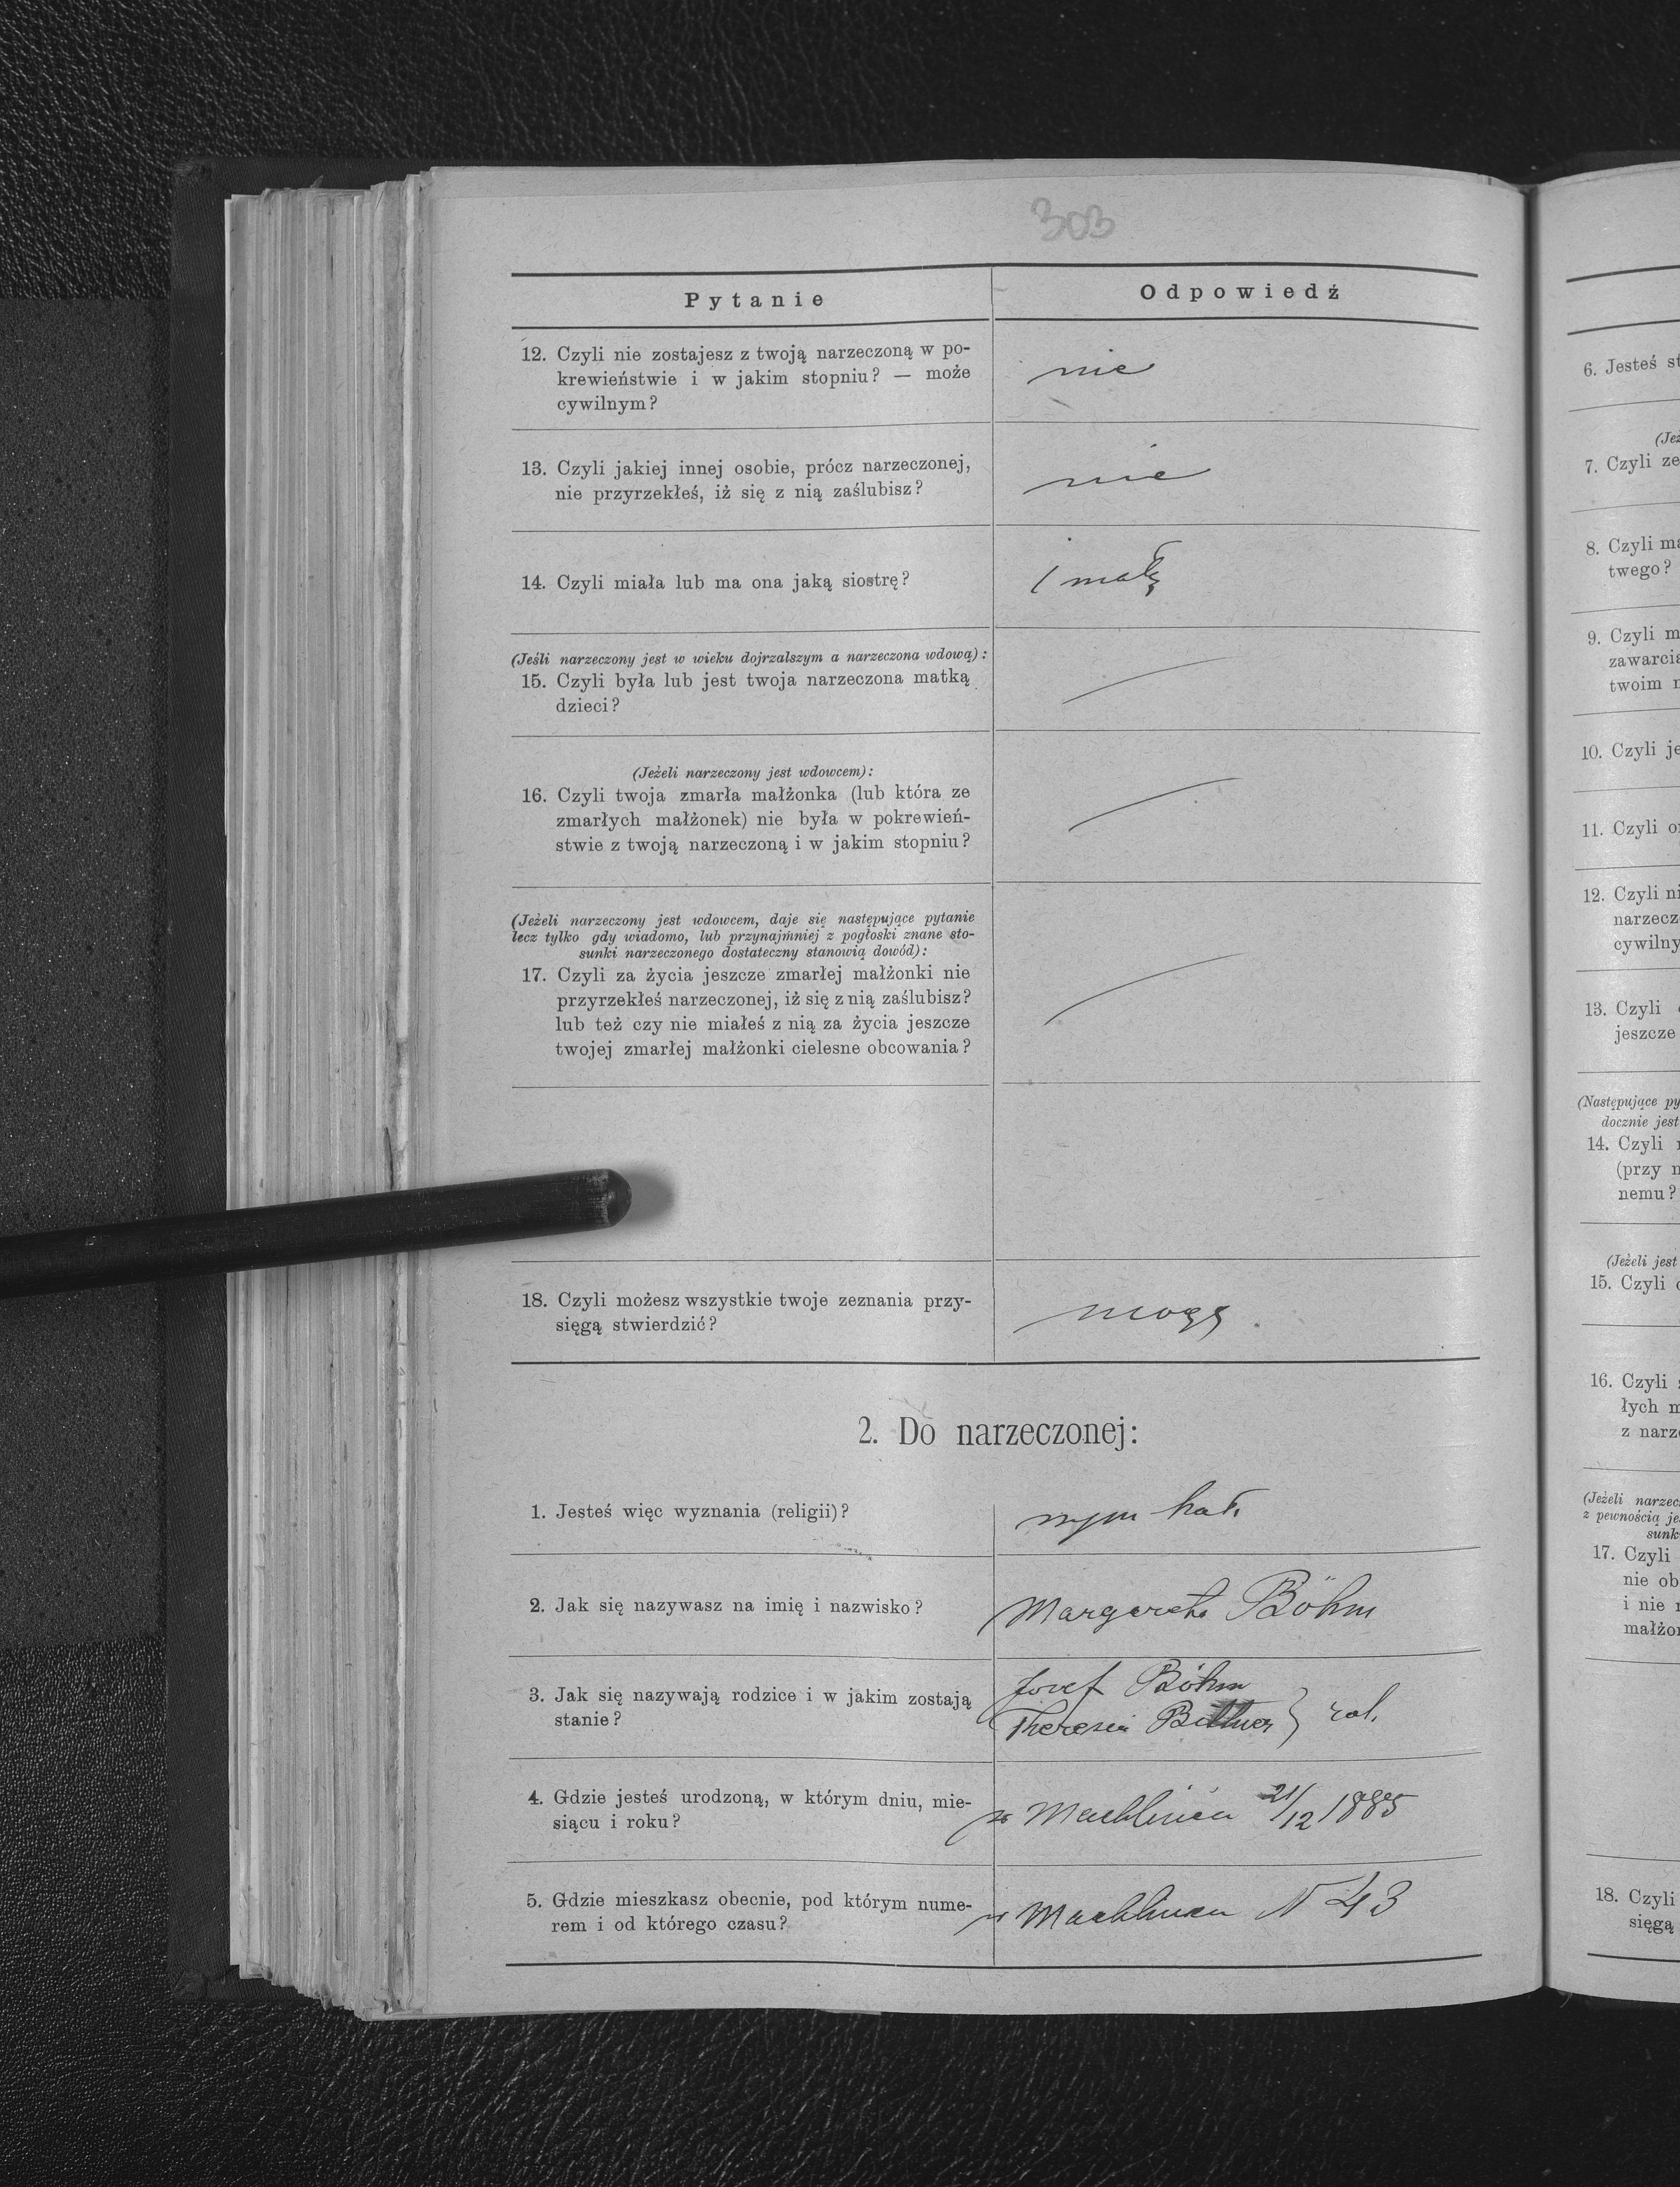 303
Pytanie
Odpowiedź
12. Czyli nie zostajesz z twoją narzeczoną w po-
krewieństwie i w jakim stopniu? — może
cywilnym?
nie
13. Czyli jakiej innej osobie, prócz narzeczonej,
nie przyrzekłeś, iż się z nią zaślubisz?
nie
14. Czyli miała lub ma ona jaką siostrę?
1 małą
(Jeśli narzeczony jest w wieku dojrzalszym a narzeczona wdową):
15. Czyli była lub jest twoja narzeczona matką
dzieci?
(Jeżeli narzeczony jest wdowcem):
16. Czyli twoja zmarła małżonka (lub która ze
zmarłych małżonek) nie była w pokrewień-
stwie z twoją narzeczoną i w jakim stopniu?
(Jeżeli narzeczony jest wdowcem, daje się następujące pytanie
lecz tylko gdy wiadomo, lub przynajmniej z pogłoski znane sto-
sunki narzeczonego dostateczny stanowią dowód):
17. Czyli za życia jeszcze zmarłej małżonki nie
przyrzekłeś narzeczonej, iż się z nią zaślubisz?
lub też czy nie miałeś z nią za życia jeszcze
twojej zmarłej małżonki cielesne obcowania?
18. Czyli możesz wszystkie twoje zeznania przy-
sięgą stwierdzić?
mogę.
2. Do narzeczonej:
1. Jesteś więc wyznania (religii)?
rzym kat.
2. Jak się nazywasz na imię i nazwisko?
Margareta Böhm
3. Jak się nazywają rodzice i w jakim zostają
stanie?
Josef Böhm
Theresia } rol.
4. Gdzie jesteś urodzoną, w którym dniu, mie-
siącu i roku?
w Machliniec 21/12 1885
5. Gdzie mieszkasz obecnie, pod którym nume-
rem i od którego czasu?
w Machliniec N 43
6. Jesteś st
(Jeż
7. Czyli ze
8. Czyli ma
twego?
9. Czyli m
zawarcia
twoim n
10. Czyli je
11. Czyli o
12. Czyli ni
narzecz
cywilny
13. Czyli
jeszcze
(Następujące py
docznie jest
14. Czyli
(przy n
nemu?
(Jeżeli jest
15. Czyli
16. Czyli
łych m
z narze
(Jeżeli narzec
z pewnością je
sunk
17. Czyli
nie ob
i nie
małżon
18. Czyli
sięgą